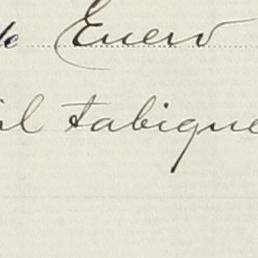 de Enero
il tabique